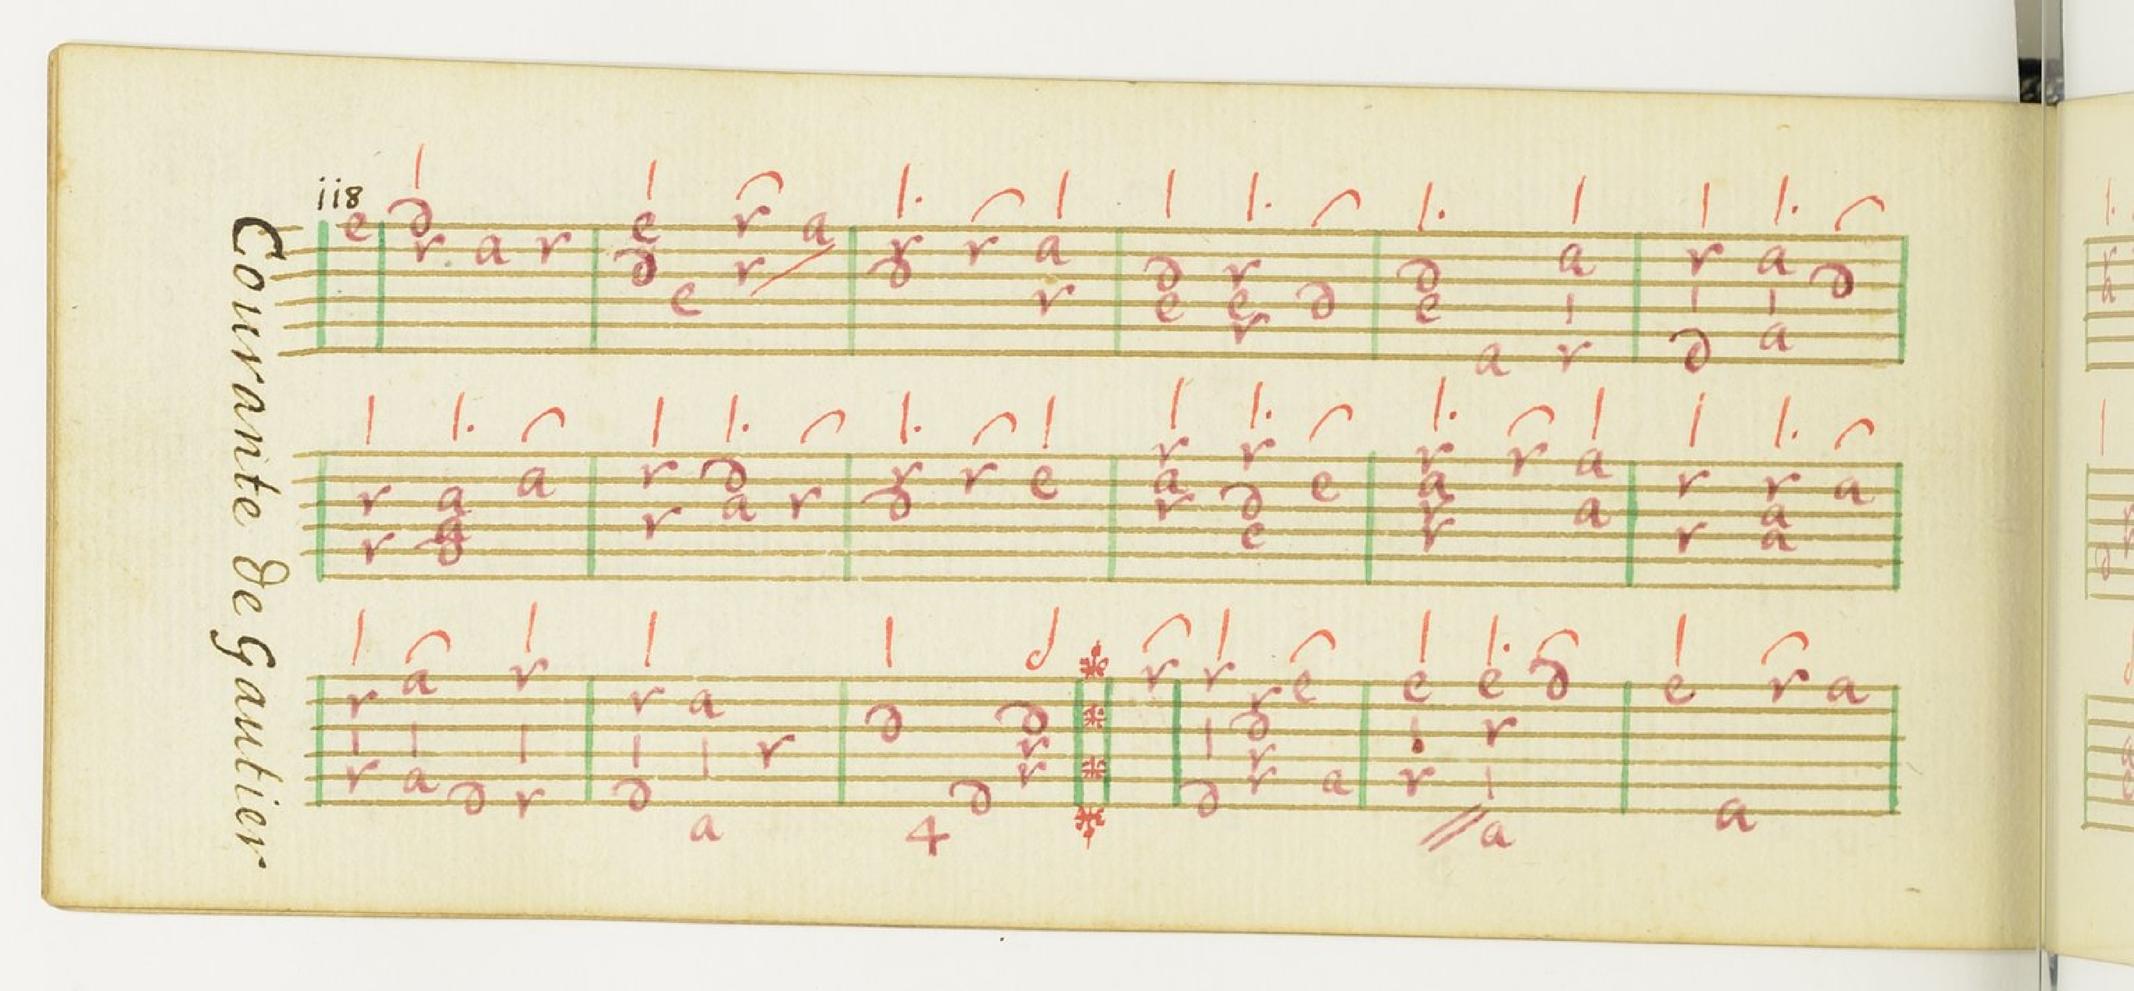 Courante de Gautier
118
e d r a r e d e r r a r d r a r d e r e r d d e a a r r d a a d
r r a g d a r r d a r r d r e r a r r d e e r a r r a a r r r a a a
r r a a d r r r d a a r d 4 d d r r r r d r d r r e a e r e r a d e a r a